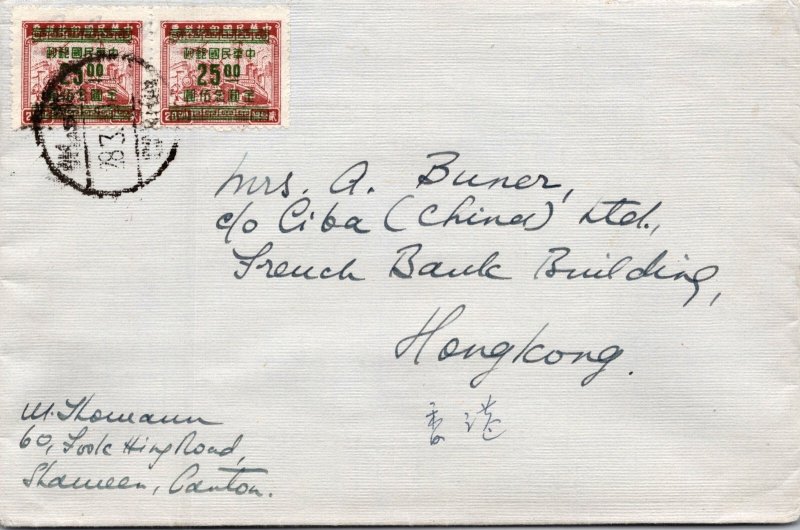 中華民國郵政 中華民國郵政
25 00 25 00
金圓貳拾伍圓 金圓貳拾伍圓
20 20
28.3.
Mrs. A. Buner,
c/o Ciba (China) Ltd.,
French Bank Building,
Hongkong.
香港
M. Thomann
60, Fook Hing Road,
Shameen, Canton.